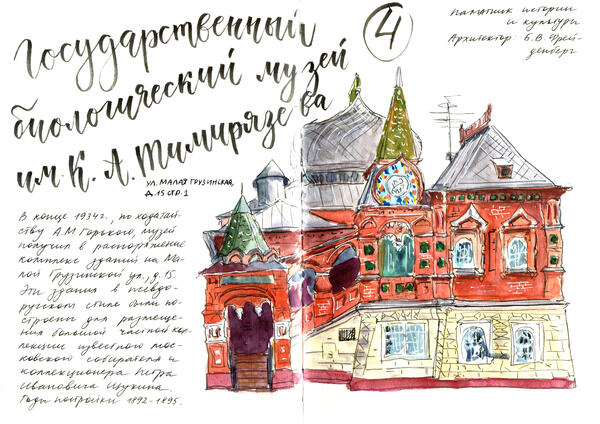 Государственный
биологический музей
им. К. А. Тимирязева
4
памятник истории
и культуры
Архитектор: Б. В. Фрей-
денберг
ул. Малая Грузинская,
д. 15 стр. 1
В конце 1934 г., по ходатай-
ству А.М Горького, музей
получил в распоряжение
комплекс зданий на Ма-
лой Грузинской ул., д. 15.
Эти здания в псевдо-
русском стиле были по-
строены для размеще-
ния большой частной кол-
лекции известного мос-
ковского собирателя и
коллекционера Петра
Ивановича Щукина.
Годы постройки 1892-1895.